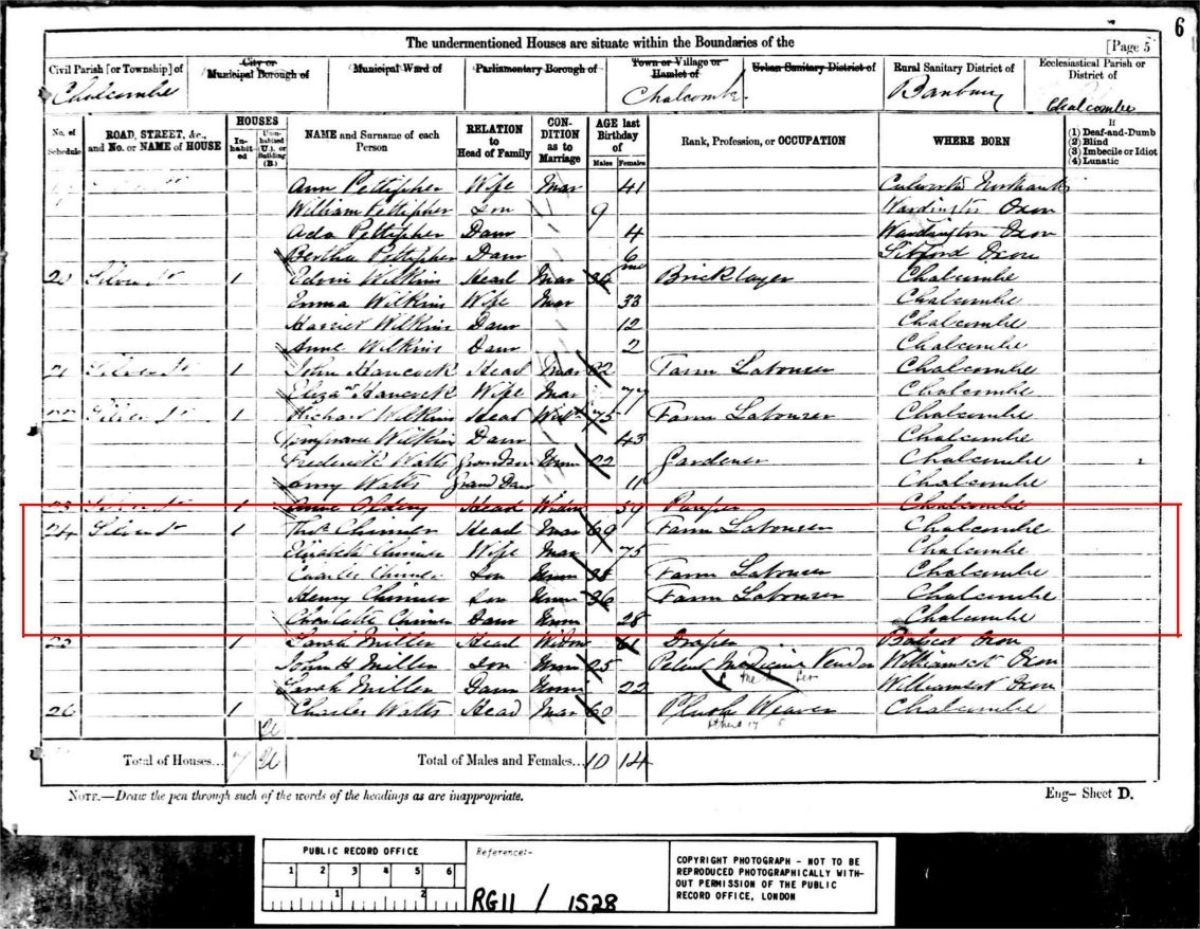 6
The undermentioned Houses are situate within the Boundaries of the [Page 5
Civil Parish [or Township] of City or Municipal Borough of Municipal Ward of Parliamentary Borough of Town or Village or Hamlet of Urban Sanitary District of Rural Sanitary District of Ecclesiastical Parish or District of
Chalcombe Chalcombe Banbury Chalcombe
No. of Schedule ROAD, STREET, &c., and No. or NAME of HOUSE HOUSES In-habited Un-habited (U.), or Building (B.) NAME and Surname of each Person RELATION to Head of Family CON-DITION as to Marriage AGE last Birthday of Males Females Rank, Profession, or OCCUPATION WHERE BORN If (1) Deaf-and-Dumb (2) Blind (3) Imbecile or Idiot (4) Lunatic
Ann Pettipher Wife Mar 41
William Pettipher Son 9 Oxon
Ada Pettipher Daur 4 Wardington Oxon
Bertha Pettipher Daur 6 mo Oxon
Edwin Wilkins Head Mar Bricklayer Chalcombe
1 Emma Wilkins Wife Mar 33 Chalcombe
Harriet Wilkins Daur 12 Chalcombe
Anne Wilkins Daur 2 Chalcombe
21 Silver St 1 John Hancock Head Mar Farm Labourer Chalcombe
Hancock Wife Mar Chalcombe
Silver St 1 Richard Wilkins Head 75 Farm Labourer Chalcombe
Wilkins Daur 43 Chalcombe
Frederick Watts Grandson Unm 22 Gardener Chalcombe
Amy Watts Grand Daur 11 Chalcombe
23 Silver St 1 Anne Head Widow Pauper Chalcombe
24 Silver St 1 Thos Chinner Head Mar 69 Farm Labourer Chalcombe
Elizabeth Chinner Wife Mar 75 Chalcombe
Charles Chinner Son Unm 38 Farm Labourer Chalcombe
Henry Chinner Son Unm 36 Farm Labourer Chalcombe
Charlotte Chinner Daur Unm 28 Chalcombe
Sarah Miller Head Widow 61 Draper Oxon
John H Miller Son 25 Patent Medicine Vendor Oxon
Sarah Miller Daur Unm 22 Oxon
26 1 Charles Watts Head Mar 60 Plush Weaver Chalcombe
Total of Houses... 7 Total of Males and Females... 10 14
NOTE.—Draw the pen through such of the words of the headings as are inappropriate. Eng— Sheet D.
PUBLIC RECORD OFFICE
1 2 3 4 5 6
1 2
Reference:-
RG11 / 1528
COPYRIGHT PHOTOGRAPH - NOT TO BE
REPRODUCED PHOTOGRAPHICALLY WITH-
OUT PERMISSION OF THE PUBLIC
RECORD OFFICE, LONDON